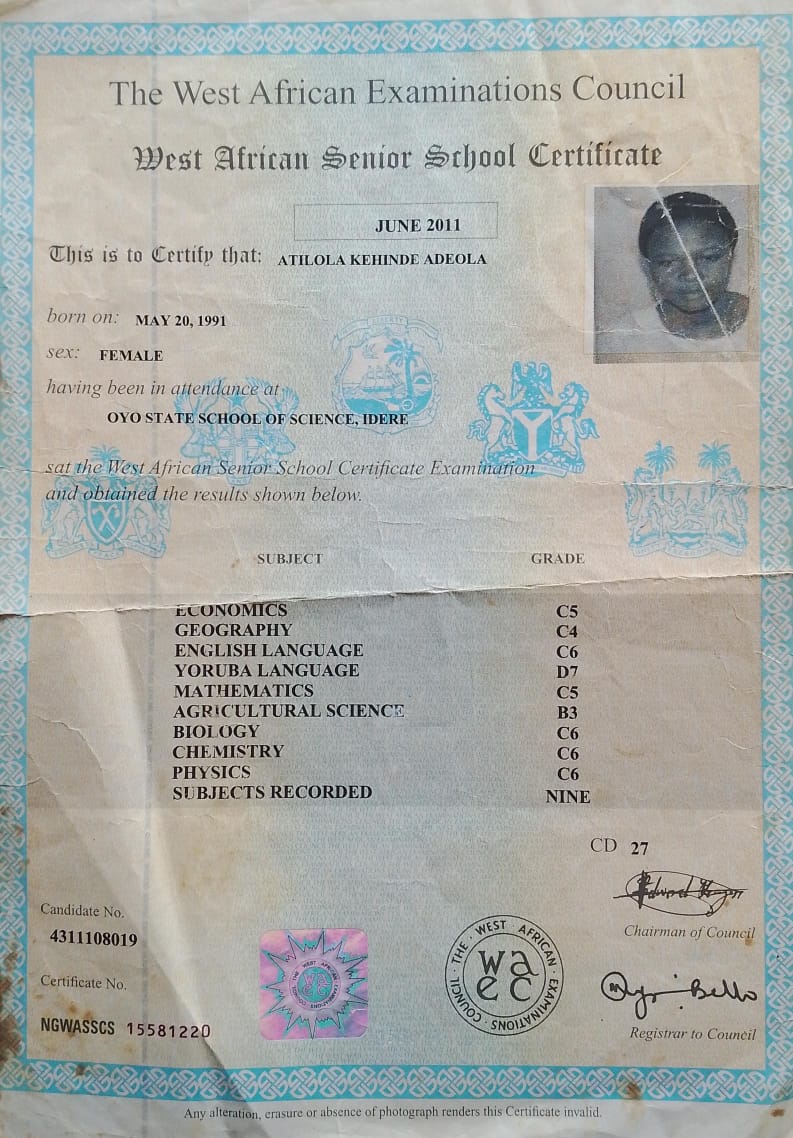 The West African Examinations Council
West African Senior School Certificate
JUNE 2011
This is to Certify that: ATILOLA KEHINDE ADEOLA
born on: MAY 20, 1991
sex: FEMALE
having been in attendance at
OYO STATE SCHOOL OF SCIENCE, IDERE
sat the West African Senior School Certificate Examination
and obtained the results shown below.
SUBJECT GRADE
ECONOMICS C5
GEOGRAPHY C4
ENGLISH LANGUAGE C6
YORUBA LANGUAGE D7
MATHEMATICS C5
AGRICULTURAL SCIENCE B3
BIOLOGY C6
CHEMISTRY C6
PHYSICS C6
SUBJECTS RECORDED NINE
CD 27
Chairman of Council
Candidate No.
4311108019
Certificate No.
NGWASSCS 15581220
THE · WEST · AFRICAN · EXAMINATIONS · COUNCIL
waec
Bello
Registrar to Council
Any alteration, erasure or absence of photograph renders this Certificate invalid.